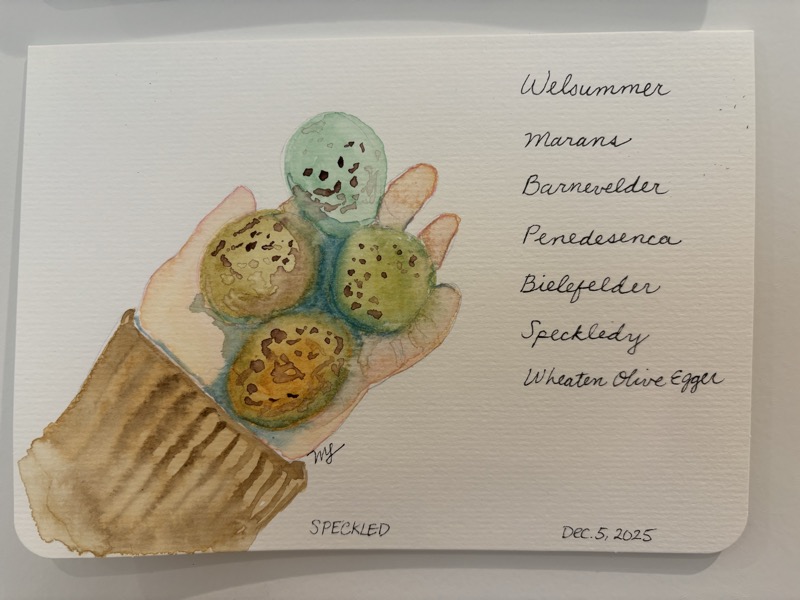 Welsummer
Marans
Barnevelder
Penedesenca
Bielefelder
Speckledy
Wheaten Olive Egger
SPECKLED
Dec. 5, 2025